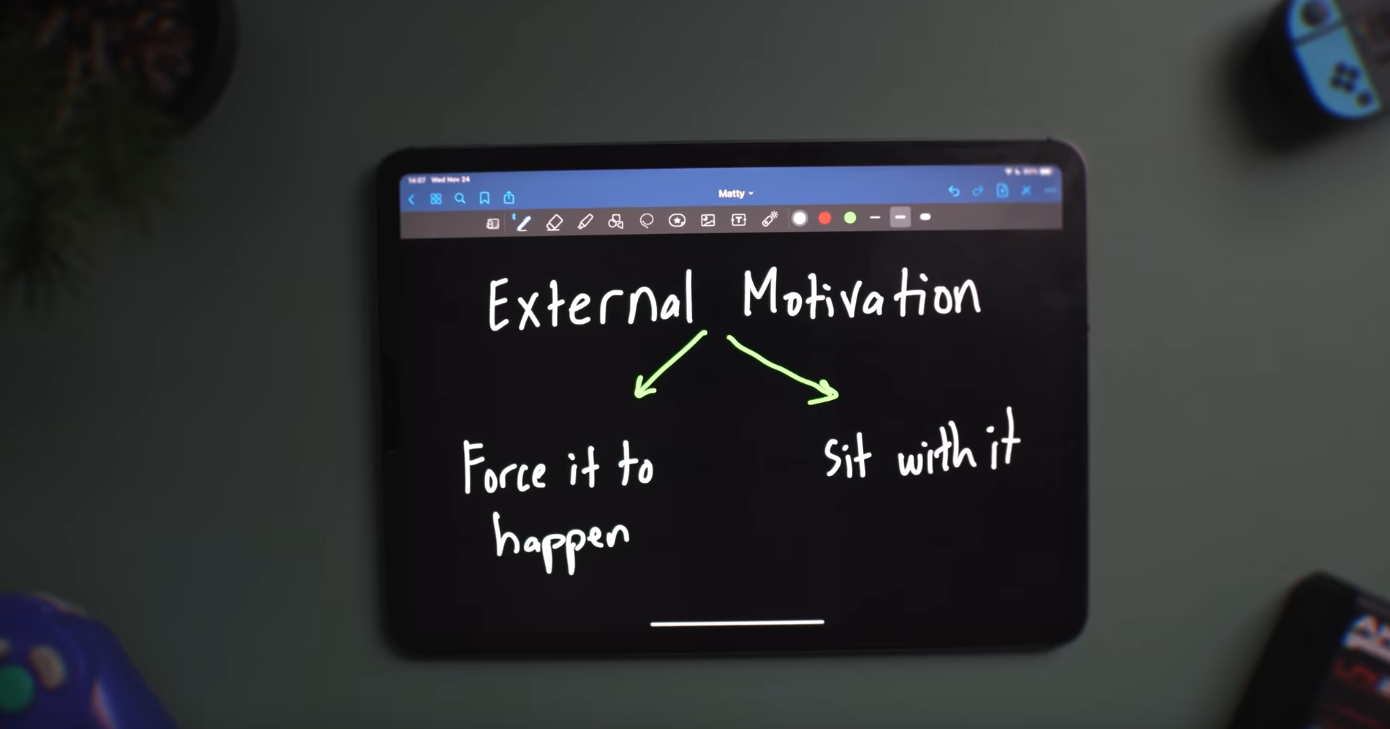 14:07 Wed Nov 24
Matty
External Motivation
Force it to
happen
Sit with it